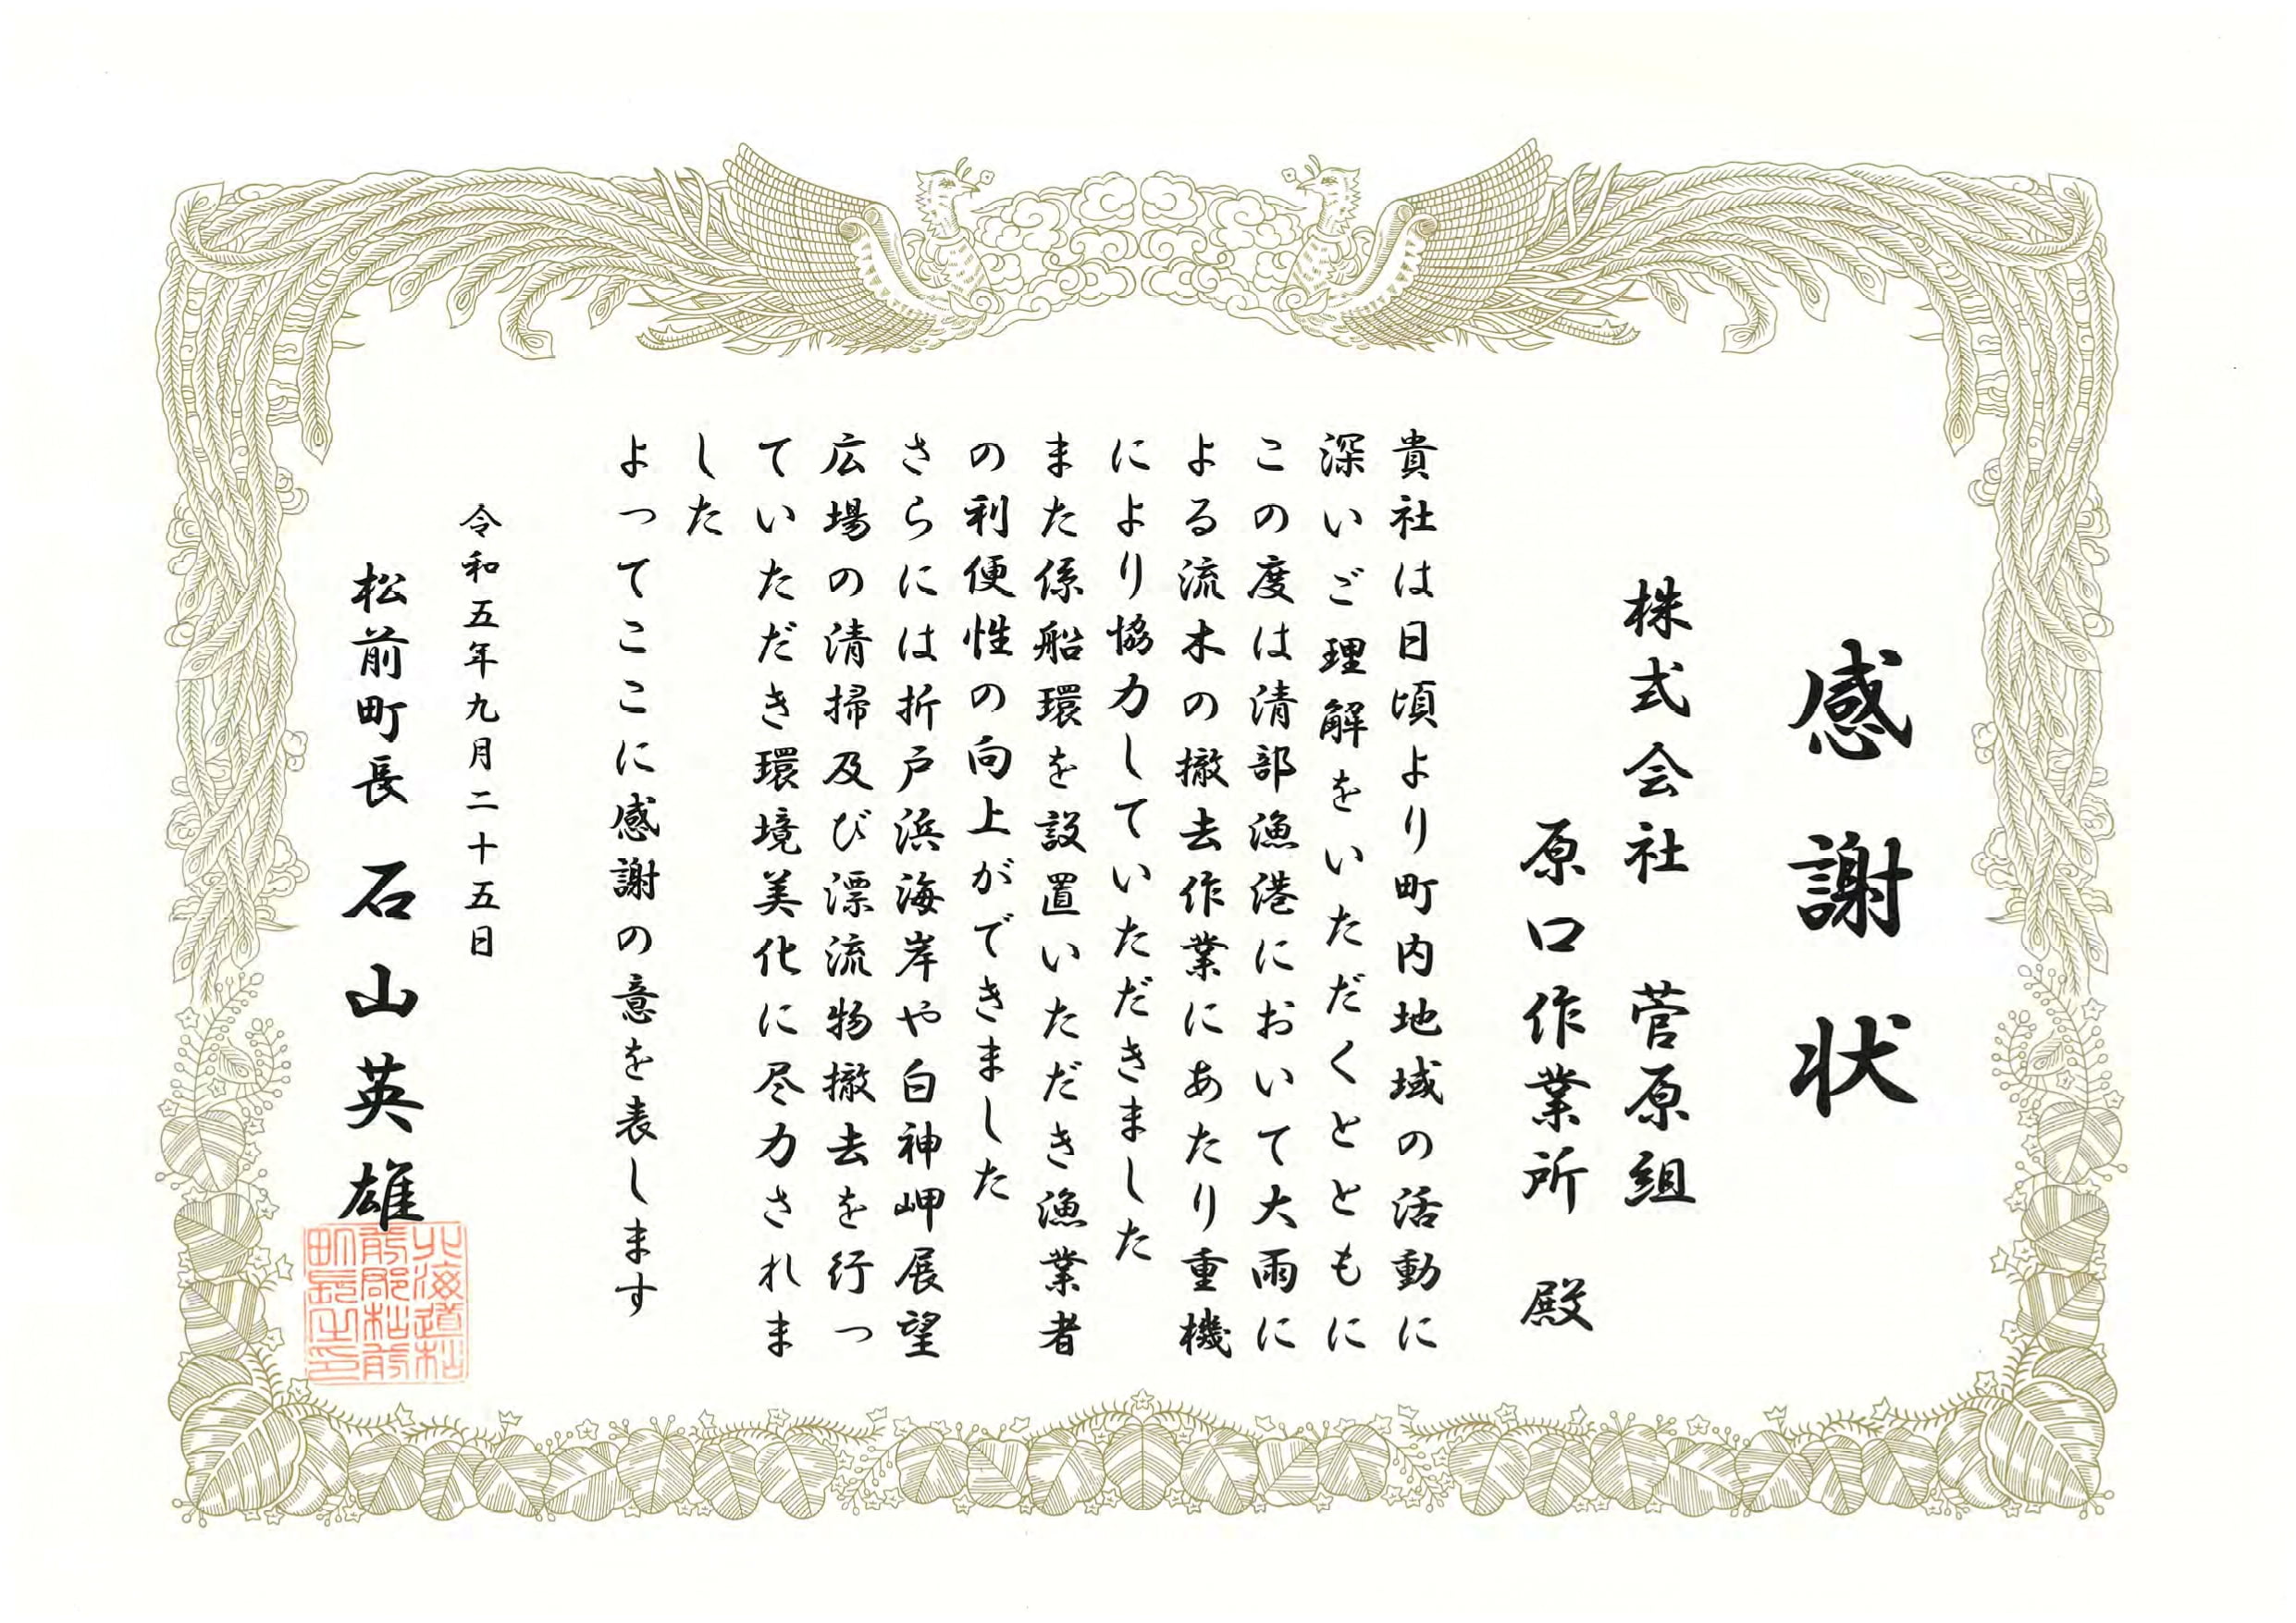 感謝状
株式会社 菅原組
原口作業所 殿
貴社は日頃より町内地域の活動に
深いご理解をいただくとともに
この度は清部漁港において大雨に
よる流木の撤去作業にあたり重機
により協力していただきました
また係船環を設置いただき漁業者
の利便性の向上ができました
さらには折戸浜海岸や白神岬展望
広場の清掃及び漂流物撤去を行っ
ていただき環境美化に尽力されま
した
よってここに感謝の意を表します
令和五年九月二十五日
松前町長 石山英雄
北海道松
前郡松前
町長之印